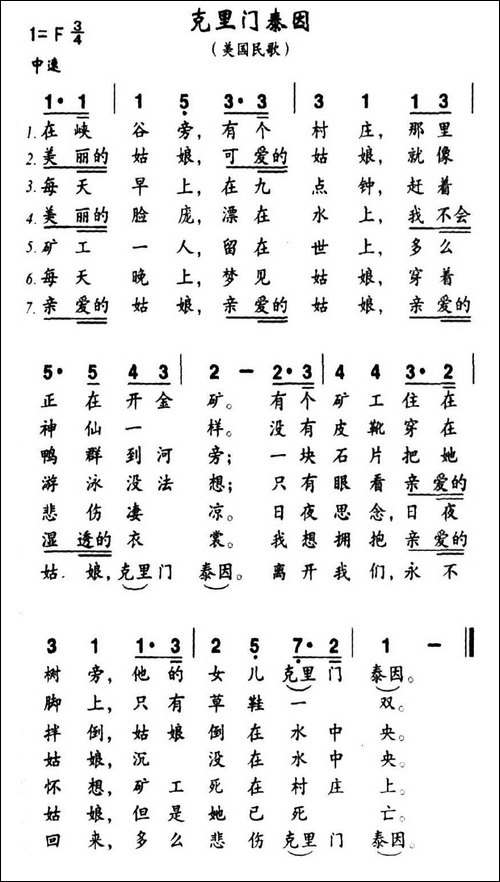 克里门泰因
(美国民歌)
1=F 3/4
中速
1· 1 | 1 5 3· 3 | 3 1 1 3 |
1.在峡谷旁,有个村庄,那里
2.美丽的姑娘,可爱的姑娘,就像
3.每天早上,在九点钟,赶着
4.美丽的脸庞,漂在水上,我不会
5.矿工一人,留在世上,多么
6.每天晚上,梦见姑娘,穿着
7.亲爱的姑娘,亲爱的姑娘,亲爱的
5· 5 4 3 | 2 - 2· 3 | 4 4 3· 2 |
正在开金矿。有个矿工住在
神仙一样。没有皮靴穿在
鸭群到河旁;一块石片把她
游泳没法想;只有眼看亲爱的
悲伤凄凉。日夜思念,日夜
湿透的衣裳。我想拥抱亲爱的
姑.娘,克里门泰因。离开我们,永不
3 1 1· 3 | 2 5 7· 2 | 1 - ||
树旁,他的女儿克里门泰因。
脚上,只有草鞋一双。
拌倒,姑娘倒在水中央。
姑娘,沉没在水中央。
怀想,矿工死在村庄上。
姑娘,但是她已死亡。
回来,多么悲伤克里门泰因。